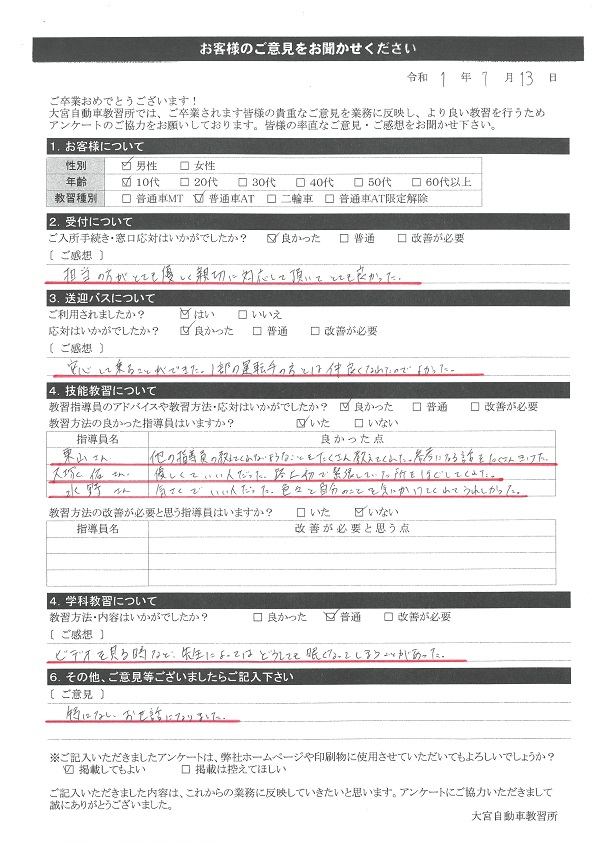 お客様のご意見をお聞かせください
令和 1 年 7 月 13 日
ご卒業おめでとうございます！
大宮自動車教習所では、ご卒業されます皆様の貴重なご意見を業務に反映し、より良い教習を行うため
アンケートのご協力をお願いしております。皆様の率直なご意見・ご感想をお聞かせ下さい。
1. お客様について
性別 ☑ 男性 □ 女性
年齢 ☑ 10代 □ 20代 □ 30代 □ 40代 □ 50代 □ 60代以上
教習種別 □ 普通車MT ☑ 普通車AT □ 二輪車 □ 普通車AT限定解除
2. 受付について
ご入所手続き・窓口応対はいかがでしたか？ ☑ 良かった □ 普通 □ 改善が必要
〔 ご感想 〕
担当の方がとても優しく親切に対応して頂いてとても良かった。
3. 送迎バスについて
ご利用されましたか？ ☑ はい □ いいえ
応対はいかがでしたか？ ☑ 良かった □ 普通 □ 改善が必要
〔 ご感想 〕
安心して乗ることができた。1部の運転手の方とは仲良くなれたのでよかった。
4. 技能教習について
教習指導員のアドバイスや教習方法・応対はいかがでしたか？ ☑ 良かった □ 普通 □ 改善が必要
教習方法の良かった指導員はいますか？ ☑ いた □ いない
指導員名 良かった点
東山さん 他の指導員の教えてくれないようなことをたくさん教えてくれた。参考になる話をたくさん
さん 優しくていい人だった。路上初で緊張していた所をほぐしてくれた。
水野さん 気さくでいい人だった。色々と自分のことを気にかけてくれてうれしかった。
教習方法の改善が必要と思う指導員はいますか？ □ いた ☑ いない
指導員名 改善が必要と思う点
4. 学科教習について
教習方法・内容はいかがでしたか？ □ 良かった ☑ 普通 □ 改善が必要
〔 ご感想 〕
ビデオを見る時など、先生によってはどうしても眠くなってしまうことがあった。
6. その他、ご意見等ございましたらご記入下さい
〔 ご意見 〕
特になし。お世話になりました。
※ご記入いただきましたアンケートは、弊社ホームページや印刷物に使用させていただいてもよろしいでしょうか？
☑ 掲載してもよい □ 掲載は控えてほしい
ご記入いただきました内容は、これからの業務に反映していきたいと思います。アンケートにご協力いただきまして
誠にありがとうございました。
大宮自動車教習所